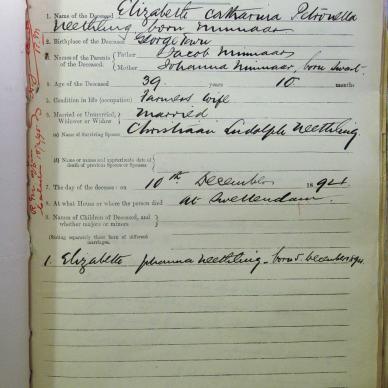 1. Name of the Deceased Elizabeth Catharina Petronella
Neethling born Minnaar
2. Birthplace of the Deceased GeorgeTown
3. Names of the Parents of the Deceased. { Father Jacob Minnaar
Mother Johanna Minnaar, born
4. Age of the Deceased 39 years 10 months
5. Condition in life (occupation) Farmers wife
6. Married or Unmarried, Widower or Widow } Married
(a) Name of Surviving Spouse Christiaan Ludolph Neethling
(b) Name or names and approximate date of death of previous Spouse or Spouses
7. The day of the decease: on 10th December 1894
8. At what House or where the person died At Swellendam.
9. Names of Children of Deceased, and whether majors or minors }
(Stating separately those born of different marriages.)
1. Elizabeth Johanna Neethling - born 5 December